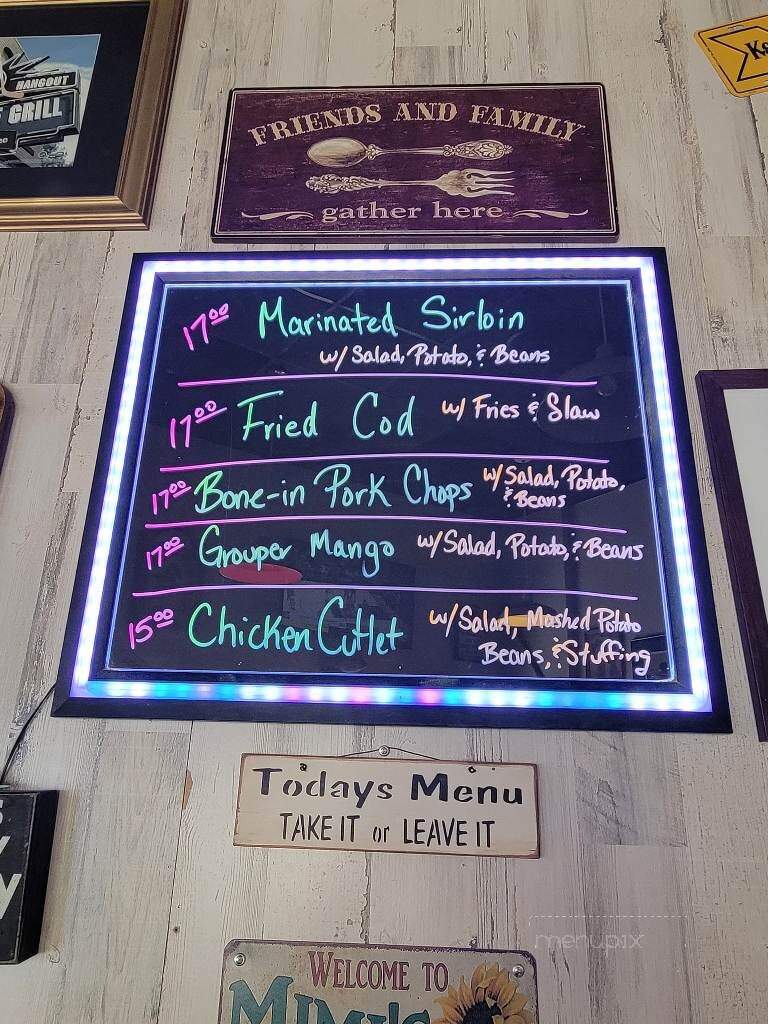 HANGOUT
GRILL
FRIENDS AND FAMILY
gather here
17⁰⁰ Marinated Sirloin
w/ Salad, Potato, & Beans
17⁰⁰ Fried Cod w/ Fries & Slaw
17⁰⁰ Bone-in Pork Chops w/ Salad, Potato,
& Beans
17⁰⁰ Grouper Mango w/ Salad, Potato, & Beans
15⁰⁰ Chicken Cutlet w/ Salad, Mashed Potato
Beans, & Stuffing
Todays Menu
TAKE IT or LEAVE IT
menupix
WELCOME TO
MIMI'S